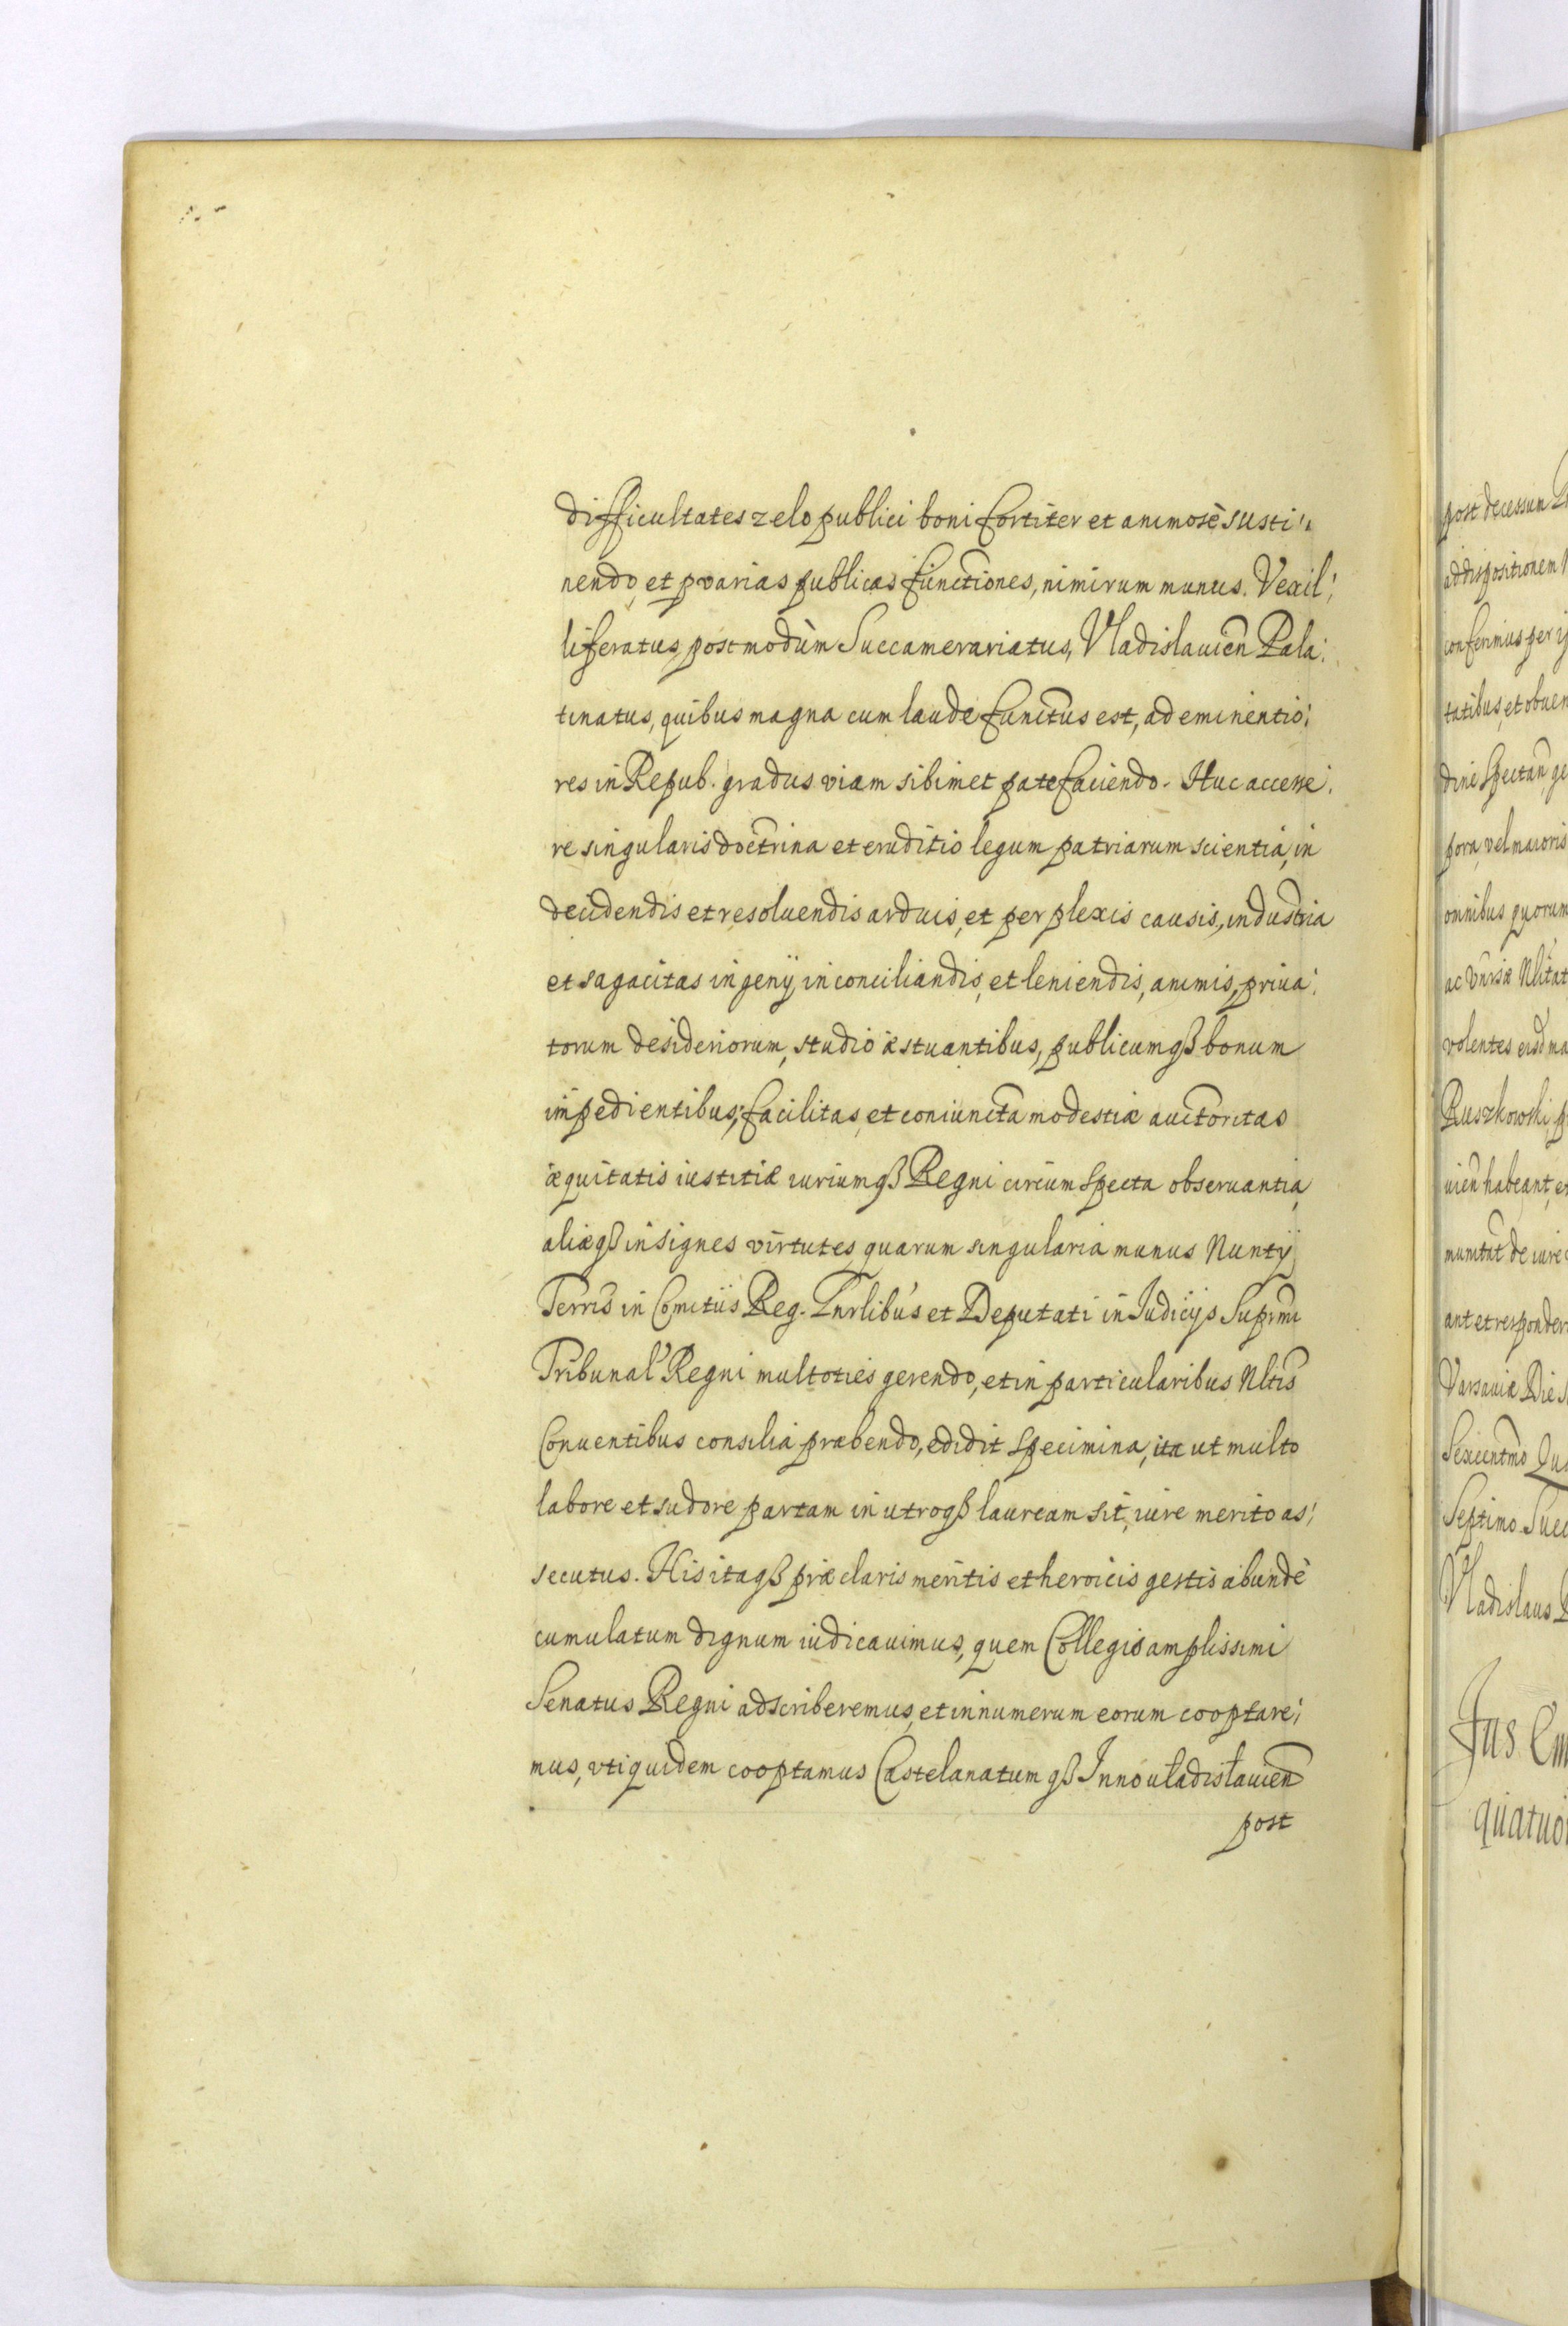 difficultates zelo publici boni fortiter et animosè susti:
nendo, et p varias publicas functiones, nimirum munus. Vexil:
liferatus, postmodùm Succamerariatus, Vladislauien Pala:
tinatus, quibus magna cum laude functus est, ad eminentio:
res in Repub. gradus viam sibimet patefaciendo. Huc accesse:
re singularis doctrina et eruditio legum patriarum scientia, in
decidendis et resoluendis arduis, et perplexis causis, industria
et sagacitas ingenij, in conciliandis, et leniendis, animis, priua:
torum desideriorum, studio æstuantibus, publicumqß bonum
impedientibus, facilitas, et coniuncta modestiæ auctoritas
æquitatis iustitiæ iuriumqß Regni circumspecta obseruantia,
aliæqß insignes virtutes, quarum singularia munus Nuntij
Terris in Comitiis Reg. Gnrlibus et Deputati in Iudicijs Suprmi
Tribunal Regni multoties gerendo, et in particularibus Nltis
Conuentibus consilia præbendo, edidit specimina, ita ut multo
labore et sudore partam in utroqß lauream sit, iure merito as:
secutus. His itaqß præclaris meritis et heroicis gestis abundè
cumulatum dignum iudicauimus, quem Collegio amplissimi
Senatus Regni adscriberemus, et in numerum eorum cooptare:
mus, vti quidem cooptamus Castelanatum qß Innouladislauien
post
post decessum
ad dispositionem
conferimus per
tatibus, et obuen
dine spectan
pora, vel maioris
omnibus quorum
ac Vnisæ Nlitat
volentes eisd ma
Ruszkowski
uien habeant,
de iure
ant et responder
Varsauiæ Die
Sexcentmo
Septimo Suec
Vladislaus
Jus
quatuor